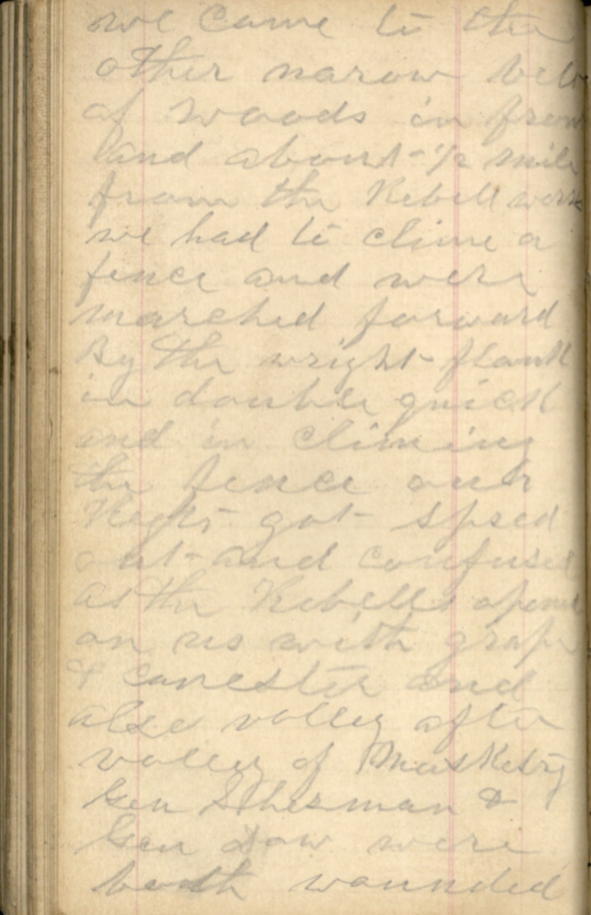 we came to the
other narow belt
of woods in front
land about 1/2 mile
from the Rebell works
we had to clime a
fence and were
marched forward
By the wright flank
in double quick
and in climing
the fence our
Regt got spred
out and confused
as the Rebells opened
on us with grape
& canester and
also volley after
volley of Musketry
Gen Sherman &
Gen Dow were
both wounded